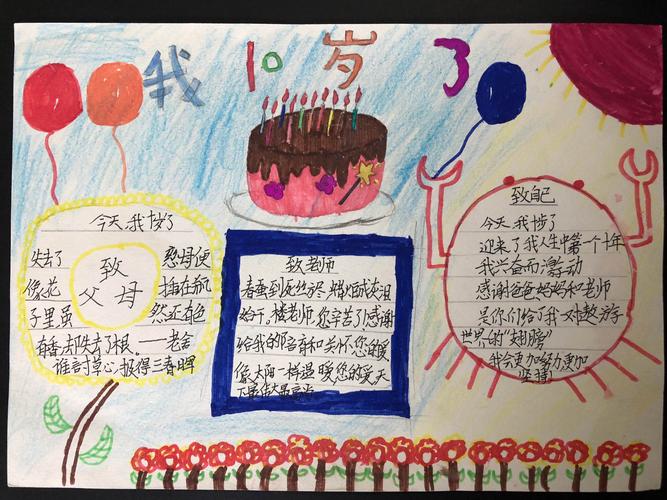 我10岁了
今天,我十岁了
致
父母
失去了 慈母便
像花 插在瓶
子里虽 然还有色
有香却失去了根。——老舍
谁言寸草心报得三春晖
致老师
春蚕到死丝方尽 蜡炬成灰泪
始干。楼老师您辛苦了感谢
给我的陪育和关怀您的爱
像太阳一样温暖您的爱天
下最伟大最高尚
致自己
今天,我十岁了
迎来了我人生中第一个十年
我兴奋而激动
感谢爸爸妈妈和老师
是你们给了我对遨游
世界的“翅膀”
我会更加努力更加
坚强